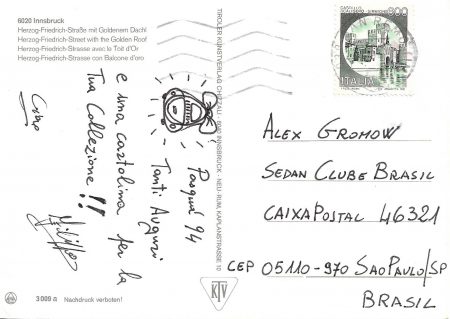 6020 Innsbruck
Herzog-Friedrich-Straße mit Goldenem Dachl
Herzog-Friedrich-Street with the Golden Roof
Herzog-Friedrich-Strasse avec le Toit d'Or
Herzog-Friedrich-Strasse con Balcone d'oro
TIROLER KUNSTVERLAG CHIZZALI · 6020 INNSBRUCK - NEU RUM, KAPLANSTRASSE 10
CASTELLO
SCALIGERO SIRMIONE
300
ITALIA
Pasqua' 94
Tanti Auguri
e una cartolina per la
Tua Collezione!!
ALEX GROMOW
SEDAN CLUBE BRASIL
CAIXA POSTAL 46321
CEP 05110-970 SAO PAULO/SP
BRASIL
KTV
3 009 a Nachdruck verboten!